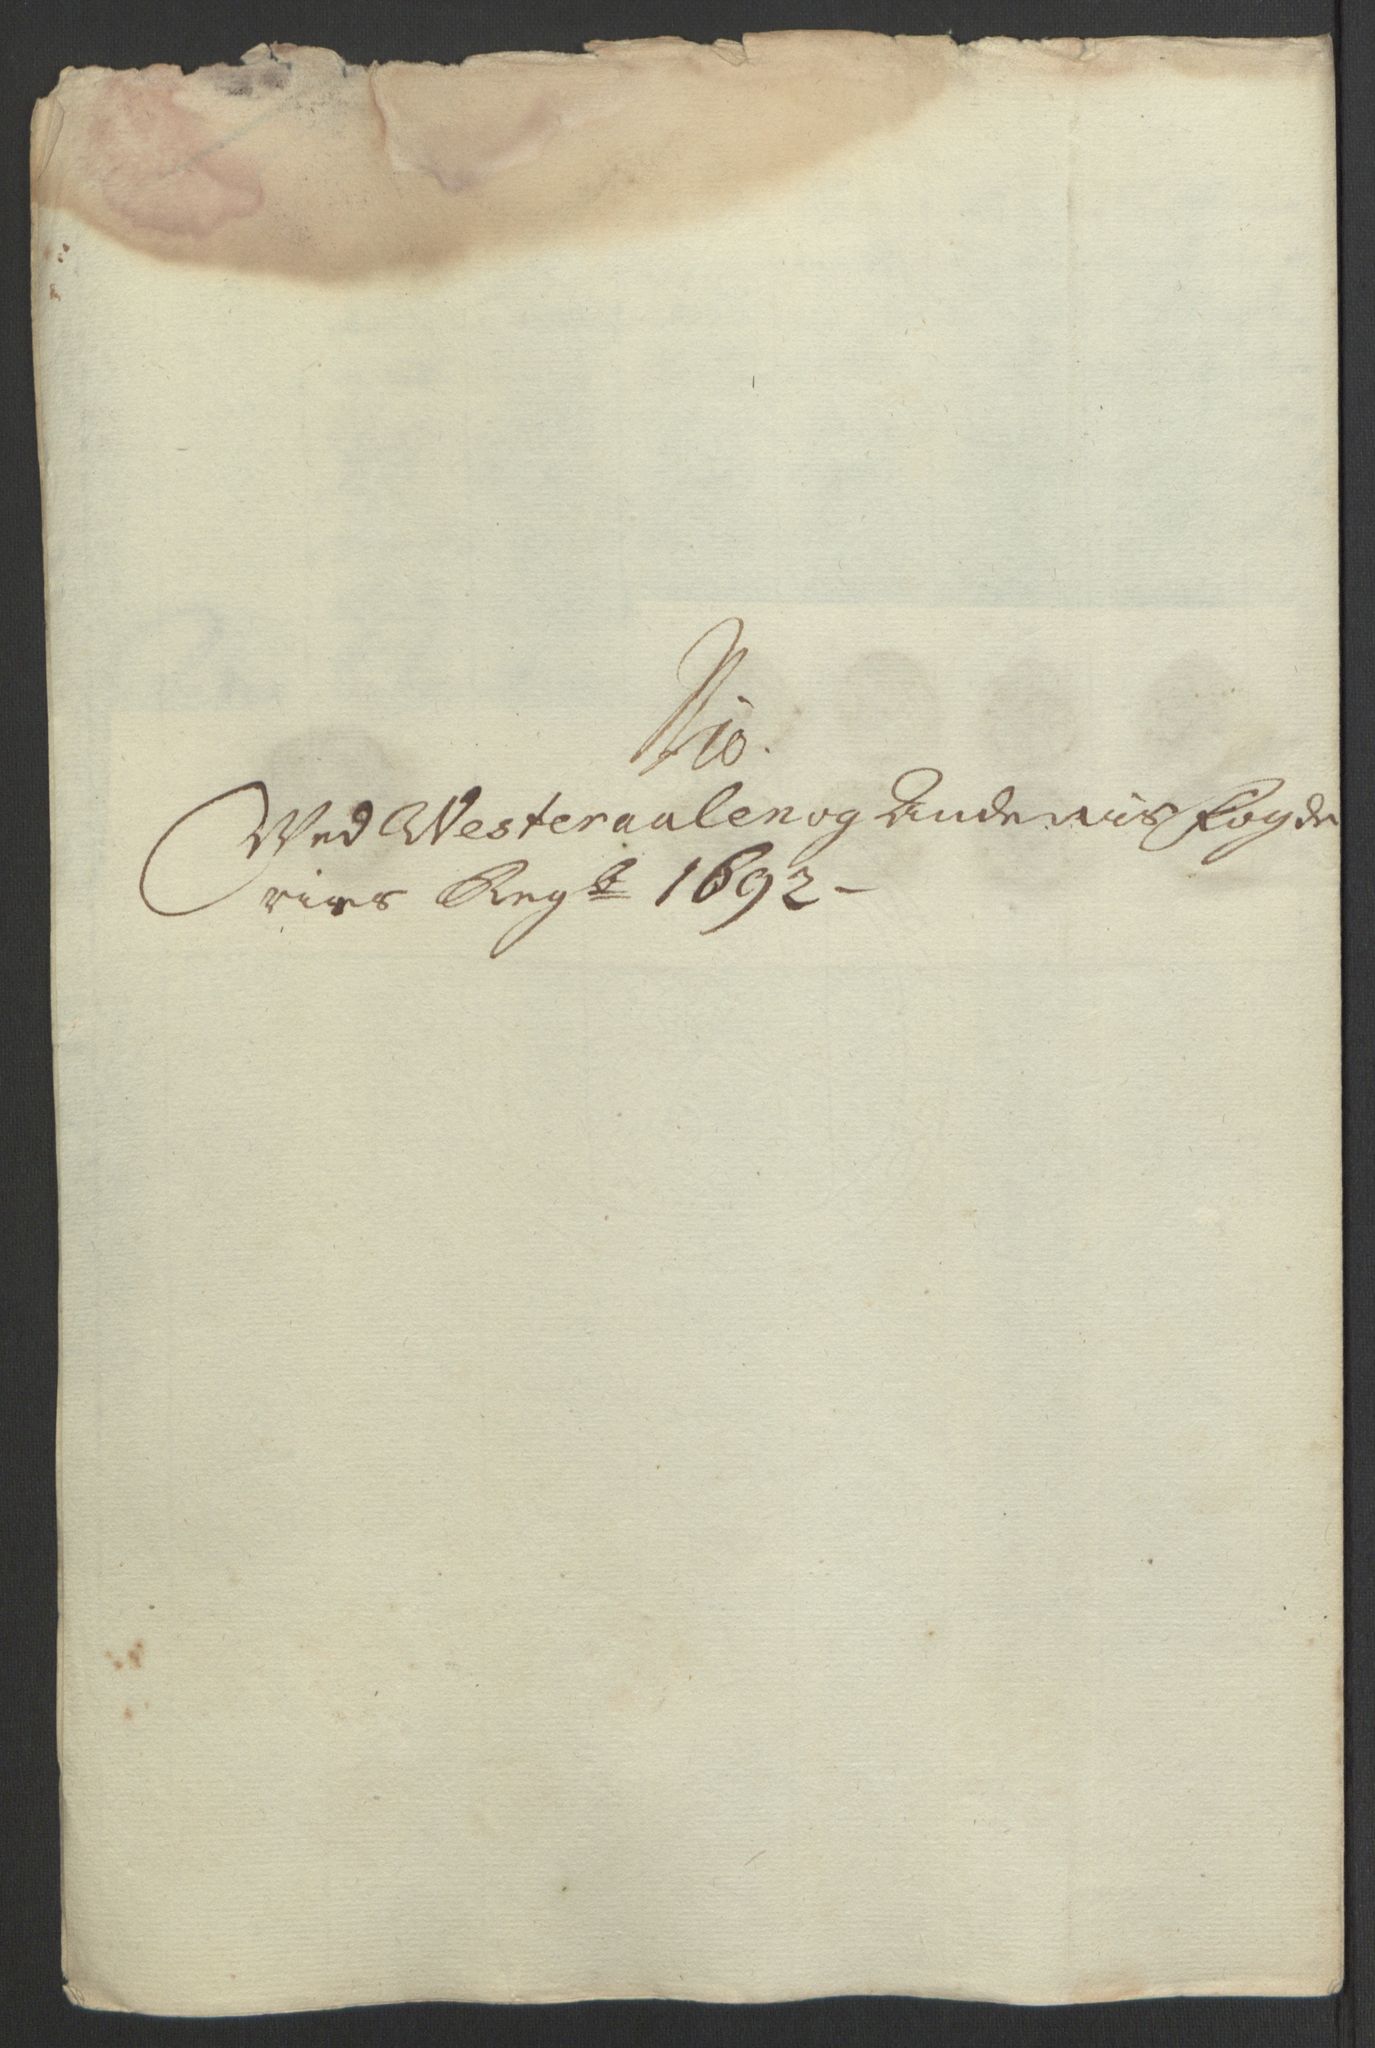 N 10.
Ved Westeraalen og Andennis fogde
riers Regsb 1692 –